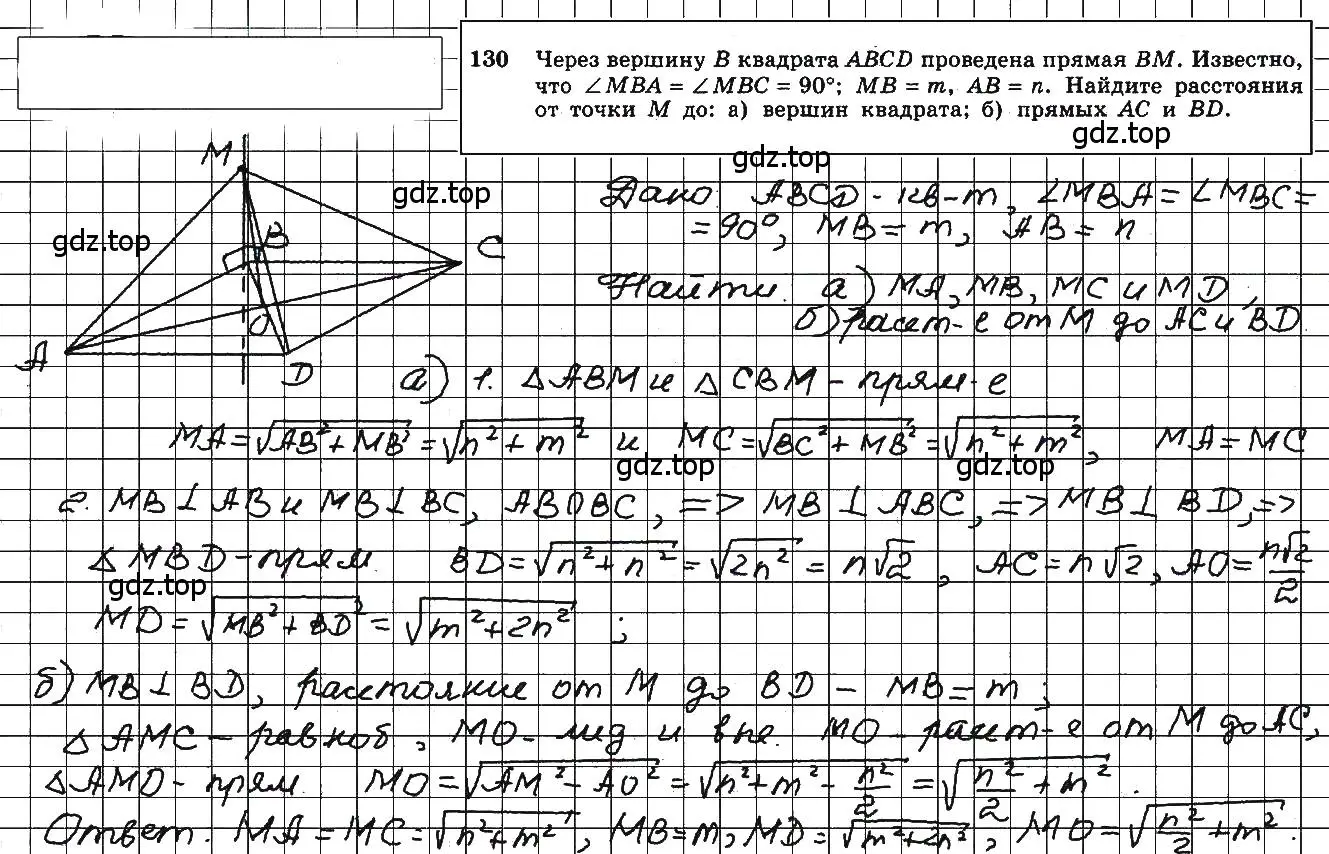 130 Через вершину B квадрата ABCD проведена прямая BM. Известно,
что ∠MBA = ∠MBC = 90°; MB = m, AB = n. Найдите расстояния
от точки M до: а) вершин квадрата; б) прямых AC и BD.
gdz.top
gdz.top
gdz.top
gdz.top
M
B
C
O
A
D
Дано: ABCD - кв-т, ∠MBA = ∠MBC =
= 90°, MB = m, AB = n
Найти: а) MA, MB, MC и MD;
б) расст-е от M до AC и BD
а) 1. △ABM и △CBM - прям-е
MA = √(AB² + MB²) = √(n² + m²) и MC = √(BC² + MB²) = √(n² + m²), MA = MC
gdz.top
gdz.top
2. MB ⊥ AB и MB ⊥ BC, AB∩BC, => MB ⊥ ABC, => MB ⊥ BD, =>
△MBD - прям. BD = √(n² + n²) = √(2n²) = n√2, AC = n√2, AO = n√2/2
gdz.top
MD = √(MB² + BD²) = √(m² + 2n²);
б) MB ⊥ BD, расстояние от M до BD - MB = m;
△AMC - равноб, MO - мед и выс. MO - расст-е от M до AC,
△AMO - прям MO = √(AM² - AO²) = √(n² + m² - n²/2) = √(n²/2 + m²).
Ответ: MA = MC = √(n² + m²), MB = m, MD = √(m² + 2n²), MO = √(n²/2 + m²).